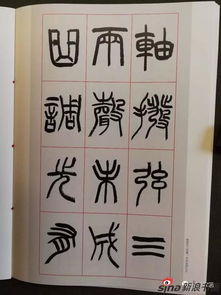 軸撥弦三
兩聲未成
曲調先有
sina 新浪